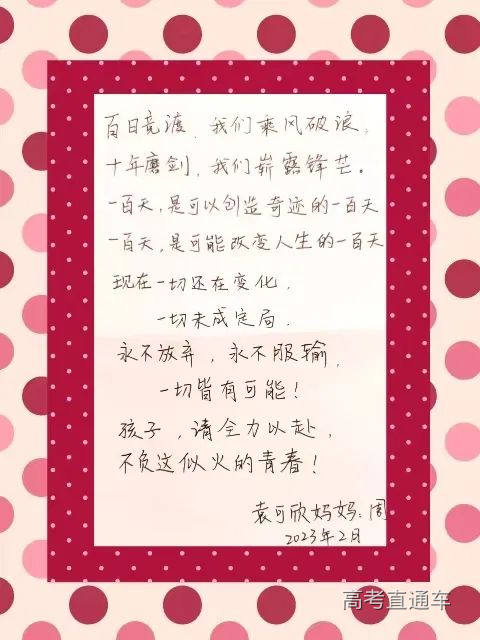 百日竞渡，我们乘风破浪，
十年磨剑，我们崭露锋芒。
一百天，是可以创造奇迹的一百天
一百天，是可能改变人生的一百天
现在一切还在变化，
一切未成定局，
永不放弃，永不服输，
一切皆有可能！
孩子，请全力以赴，
不负这似火的青春！
袁可欣妈妈：周
2023年2月
高考直通车